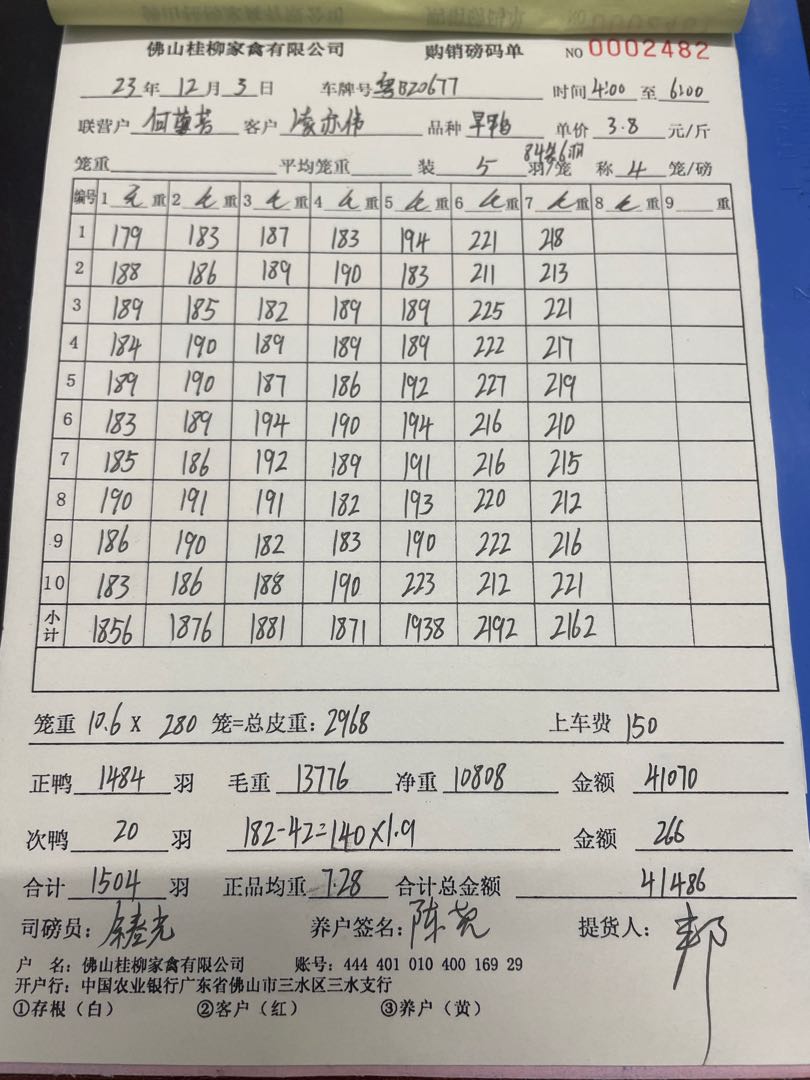 佛山桂柳家禽有限公司 购销磅码单 NO 0002482
23年12月3日 车牌号粤BZ0677 时间4:00至6:00
联营户 客户凌亦伟 品种 单价3.8元/斤
84笼6羽
笼重 平均笼重 装5羽/笼 称4笼/磅
编号 1毛重 2毛重 3毛重 4毛重 5毛重 6毛重 7毛重 8毛重 9 重
1 179 183 187 183 194 221 218
2 188 186 189 190 183 211 213
3 189 185 182 189 189 225 221
4 184 190 189 189 189 222 217
5 189 190 187 186 192 227 219
6 183 189 194 190 194 216 210
7 185 186 192 189 191 216 215
8 190 191 191 182 193 220 212
9 186 190 182 183 190 222 216
10 183 186 188 190 223 212 221
小计 1856 1876 1881 1871 1938 2192 2162
笼重10.6X280笼=总皮重:2968 上车费150
正鸭1484羽 毛重13776 净重10808 金额41070
次鸭20羽 182-42=140X1.9 金额266
合计1504羽 正品均重7.28 合计总金额41486
司磅员: 养户签名:陈 提货人:
户 名:佛山桂柳家禽有限公司 账号:444 401 010 400 169 29
开户行:中国农业银行广东省佛山市三水区三水支行
①存根(白) ②客户(红) ③养户(黄)